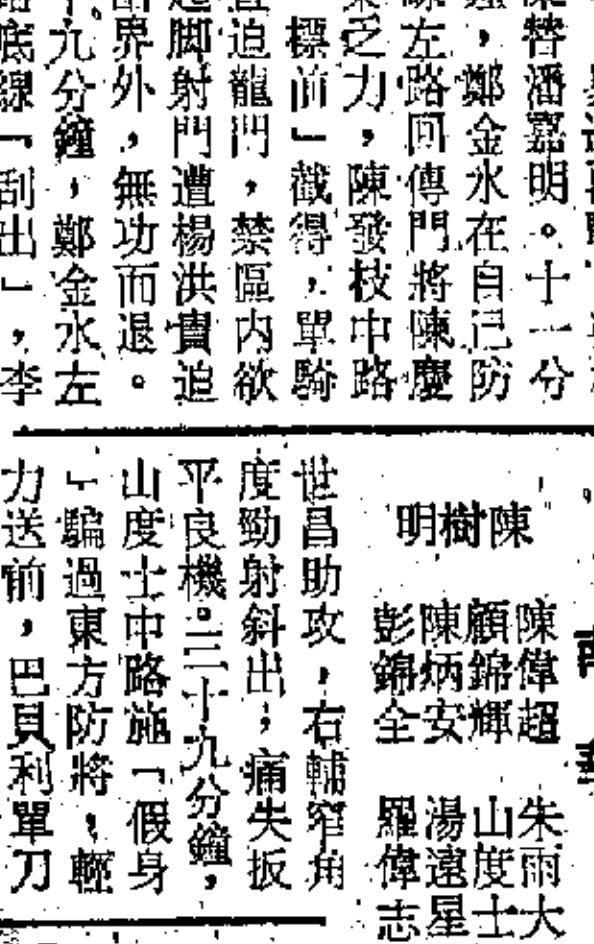 替潘嘉明。十一分
鄭金水在自己防
左路回傳門將陳慶
乏力，陳發枝中路
標前」截得，單騎
迫龍門，禁區內欲
脚射門遭楊洪貴迫
界外，無功而退。
九分鐘，鄭金水左
底線「刮出」，李
陳偉超　朱雨大
顧錦輝　山度士
陳炳安　湯遠星
彭錦全　羅偉志
陳樹明
世昌助攻，右輔窄角
度勁射斜出，痛失扳
平良機。三十九分鐘，
山度士中路施「假身
」騙過東方防將，輕
力送前，巴貝利單刀